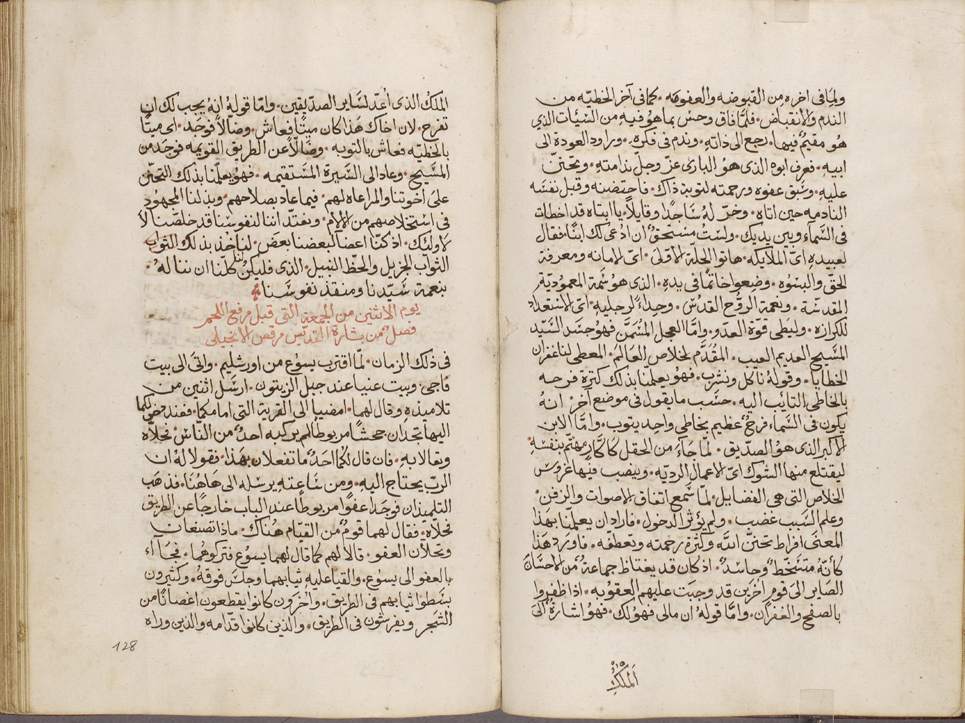 ولما في اخره من القبوضه والعفوصه ۰ كما في آخر الخطيه من
الندم والانقباض ۰ فلما فاق وحس بما هو فيه من السيئات الذي
هو مقيم فيها ۰ رجع الى ذاته ۰ وندم في فكره ۰ وراود العودة الى
ابيه ۰ فعرف ابوه الذى هو البارى عز وجل ندامته ۰ وتحنن
عليه ۰ وسبق عفوه ورحمته لتوبة ذاك ۰ فاحتضنه وقبل نفسه
النادمه حين اتاه ۰ وخر له ساجدا وقايلا ۰ يا ابتاه قد اخطات
في السماء وبين يديك ۰ ولست مستحق ان ادعى لك ابنا فقال
لعبيده اى الملايكه ۰ هاتوا الحلة الاولى ۰ اى الامانه ومعرفة
الحق والبنوه ۰ وضعوا خاتما في يده ۰ الذى هو سمة المعموديه
المقدسة ۰ ونعمة الروح القدس ۰ وحداء لرجليه ۰ اى الاستعداد
للكرازه ۰ وليطى قوة العدو ۰ واما العجل المسمن فهو جسد السيد
المسيح العديم العيب ۰ المقدم لخلاص العالم ۰ المعطى لنا غفران
الخطايا ۰ وقوله ناكل ونشرب ۰ فهو يعلمنا بذلك كثرة فرحه
بالخاطى التايب اليه ۰ حسب ما يقول في موضع آخر ۰ انه
يكون في السماء فرح عظيم بخاطى واحد يتوب ۰ واما الابن
الاكبر الذى هو الصديق ۰ لما جاء من الحقل كاكار مهتم بنفسه
ليقتلع منها الشوك اى الاعمال الرديه ۰ وينصب فيها غروس
الخلاص التى هى الفضايل ۰ لما سمع اتفاق الاصوات والزفن ۰
وعلم السبب غضب ۰ ولم يؤثر الدخول ۰ فاراد ان يعلمنا بهذا
المعنى افراط تحنن الله وكثرة رحمته وتعطفه ۰ فاورد هذا
كانه متسخط وحاسد ۰ اذ كان قد يغتاظ جماعة من الاحسان
الصاير الى قوم اخرين قد وجبت عليهم العقوبه ۰ اذا ظفروا
بالصفح والغفران ۰ واما قوله ان مالى فهو لك ۰ فهو اشارة الى
الملك
الملك الذى اعد لساير الصديقين ۰ واما قوله انه يجب لك ان
تفرح ۰ لان اخاك هذا كان ميتا فعاش ۰ وضالا فوجد ۰ اى ميتا
بالخطيه فعاش بالتوبه ۰ وضالا عن الطريق القويمه فوجد من
المسيح ۰ وعاد الى السيرة المستقيمه ۰ فهو يعلمنا بذلك التحنن
على اخوتنا والمراعاه لهم ۰ فيما عاد بصلاحهم ۰ وبذلنا المجهود
في استخلاصهم من الالام ۰ ونعتد اننا لنفوسنا قد خلصنا لا
لاولئك ۰ اذ كنا اعضا لبعضنا بعض ۰ لناخذ بذلك الثواب
الثواب الجزيل والحظ النبيل ۰ الذى فليكن لكلنا ان نناله ۰
بنعمة سيدنا ومنقذ نفوسنا ۰
يوم الاثنين من الجمعة التى قبل مرفع اللحم
فصل من بشارة القديس مرقص الانجيلى
في ذلك الزمان ۰ لما اقترب يسوع من اورشليم ۰ واتى الى بيت
فاجى ۰ وبيت عنيا عند جبل الزيتون ۰ ارسل اثنين من
تلاميذه وقال لهما ۰ امضيا الى القرية التى امامكما ۰ فعند دخولكما
اليها تجدان جحشا مربوطا لم يركبه احد من الناس ۰ فحلاه
وتعالا به ۰ فان قال لكما احد ما تفعلان بهذا ۰ فقولا له ان
الرب يحتاج اليه ۰ ومن ساعته يرسله الى هاهنا ۰ فذهب
التلميذان فوجدا عفوا مربوطا عند الباب خارجا عن الطريق
فحلاه ۰ فقال لهما قوم من القيام هناك ۰ ماذا تصنعان
وتحلان العفو ۰ قالا لهم كما قال لهما يسوع فتركوهما ۰ فجاآ
بالعفو الى يسوع ۰ والقيا عليه ثيابهما وجلس فوقه ۰ وكثيرون
بسطوا ثيابهم في الطريق ۰ واخرون كانوا يقطعون اغصانا من
الشجر ويفرشون في الطريق ۰ والذين كانوا قدامه والذين وراه
128